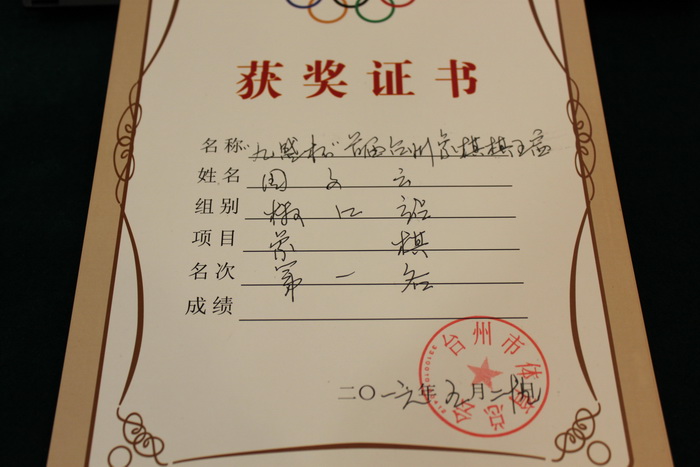 获奖证书
名称 "九盛杯"首届台州象棋棋王赛
姓名 周文云
组别 椒口组
项目 象棋
名次 第一名
成绩
台州市体育总会
二〇一六年五月二